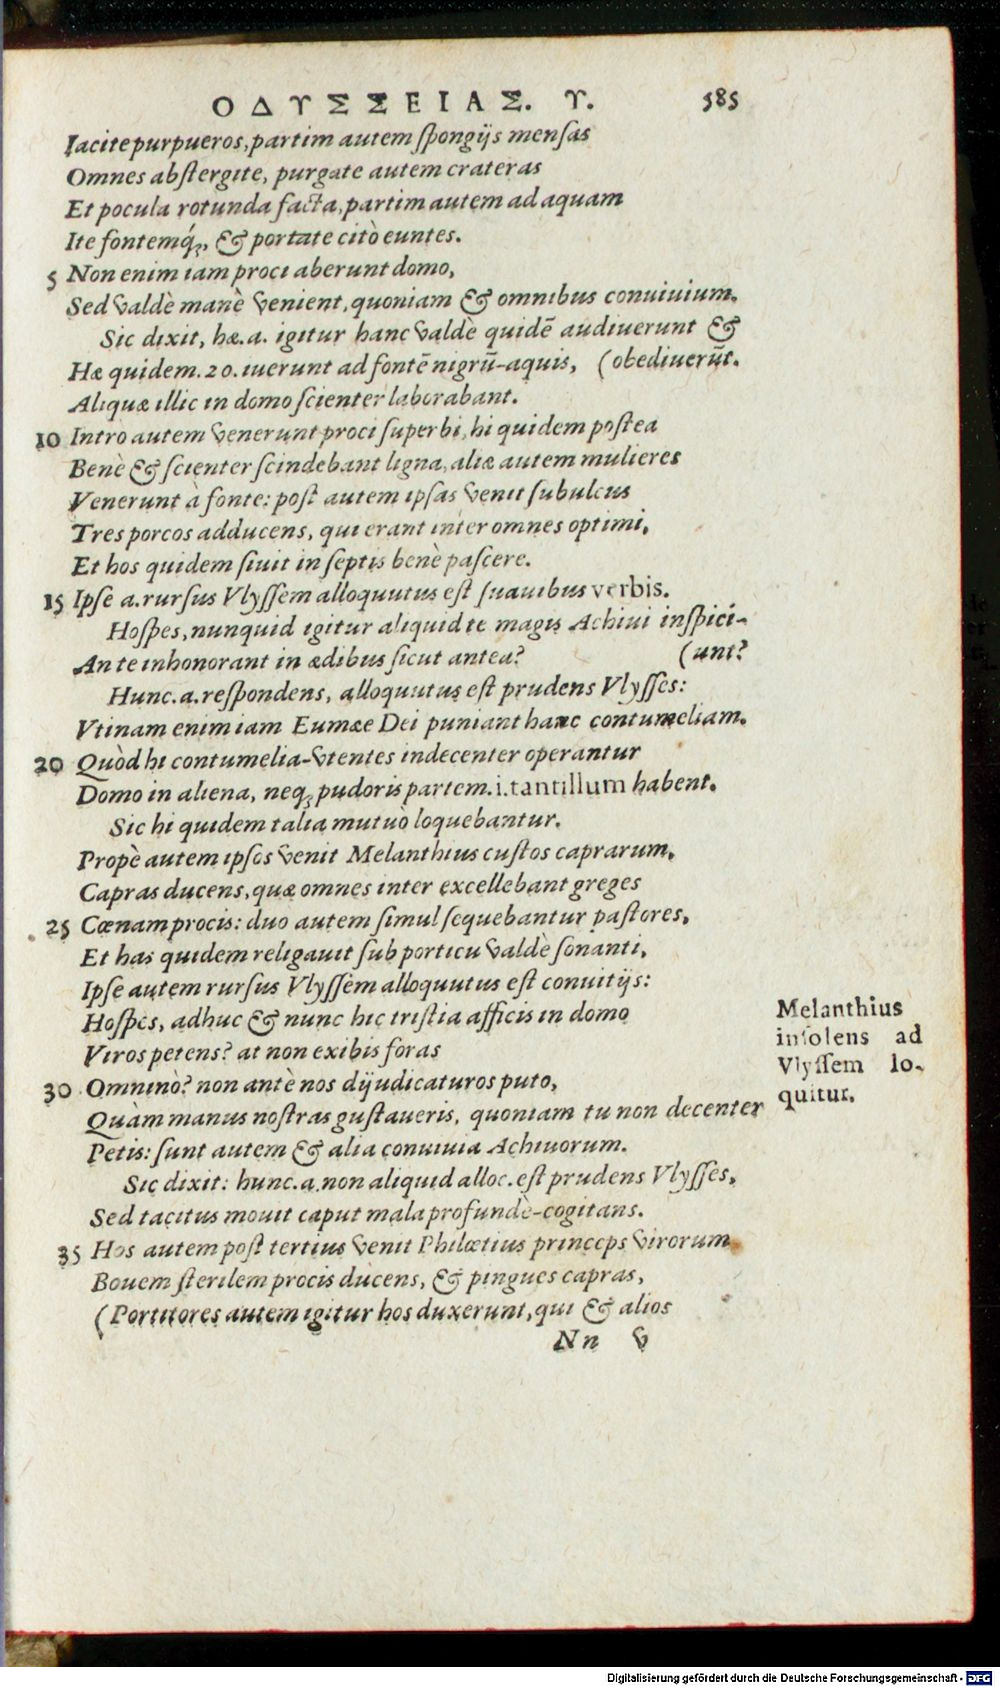 ΟΔΥΣΣΕΙΑΣ. Υ. 585
Iacite purpueros, partim autem ſpongijs menſas
Omnes abſtergite, purgate autem crateras
Et pocula rotunda facta, partim autem ad aquam
Ite fontemq́;, & portate citò euntes.
5 Non enim iam proci aberunt domo,
Sed valdè manè venient, quoniam & omnibus conuiuium.
Sic dixit, hæ.a. igitur hanc valdè quidẽ audiuerunt &
Hæ quidem.20.iuerunt ad fontẽ nigrũ-aquis, (obediuerũt.
Aliquæ illic in domo ſcienter laborabant.
10 Intrò autem venerunt proci ſuperbi, hi quidem poſtea
Benè & ſcienter ſcindebant ligna, aliæ autem mulieres
Venerunt à fonte: poſt autem ipſas venit ſubulcus
Tres porcos adducens, qui erant inter omnes optimi,
Et hos quidem ſiuit in ſeptis benè paſcere.
15 Ipſe a. rurſus Vlyſſem alloquutus eſt ſuauibus verbis.
Hoſpes, nunquid igitur aliquid te magis Achiui inſpici-
An te inhonorant in ædibus ſicut antea? (unt?
Hunc.a.reſpondens, alloquutus eſt prudens Vlyſſes:
Vtinam enim iam Eumæe Dei puniant hanc contumeliam.
20 Quòd hi contumelia-vtentes indecenter operantur
Domo in aliena, neq; pudoris partem.i.tantillum habent.
Sic hi quidem talia mutuò loquebantur.
Propè autem ipſos venit Melanthius cuſtos caprarum,
Capras ducens, quæ omnes inter excellebant greges
25 Cœnam procis: duo autem ſimul ſequebantur paſtores,
Et has quidem religauit ſub porticu valdè ſonanti,
Ipſe autem rurſus Vlyſſem alloquutus eſt conuitijs:
Hoſpes, adhuc & nunc hic triſtia afficis in domo
Viros petens? at non exibis foras
30 Omninò? non antè nos dijudicaturos puto,
Quàm manus noſtras guſtaueris, quoniam tu non decenter
Petis: ſunt autem & alia conuiuia Achiuorum.
Sic dixit: hunc.a.non aliquid alloc.eſt prudens Vlyſſes,
Sed tacitus mouit caput mala profundè-cogitans.
35 Hos autem poſt tertius venit Philœtius princeps virorum
Bouem ſterilem procis ducens, & pingues capras,
(Portitores autem igitur hos duxerunt, qui & alios
Nn v
Melanthius
inſolens ad
Vlyſſem lo-
quitur.
Digitalisierung gefördert durch die Deutsche Forschungsgemeinschaft - DFG